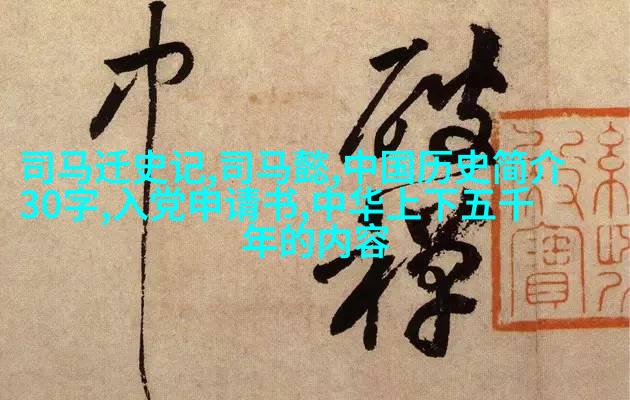 司马迁史记,司马懿,中国历史简介
30字,入党申请书,中华上下五千
年的内容